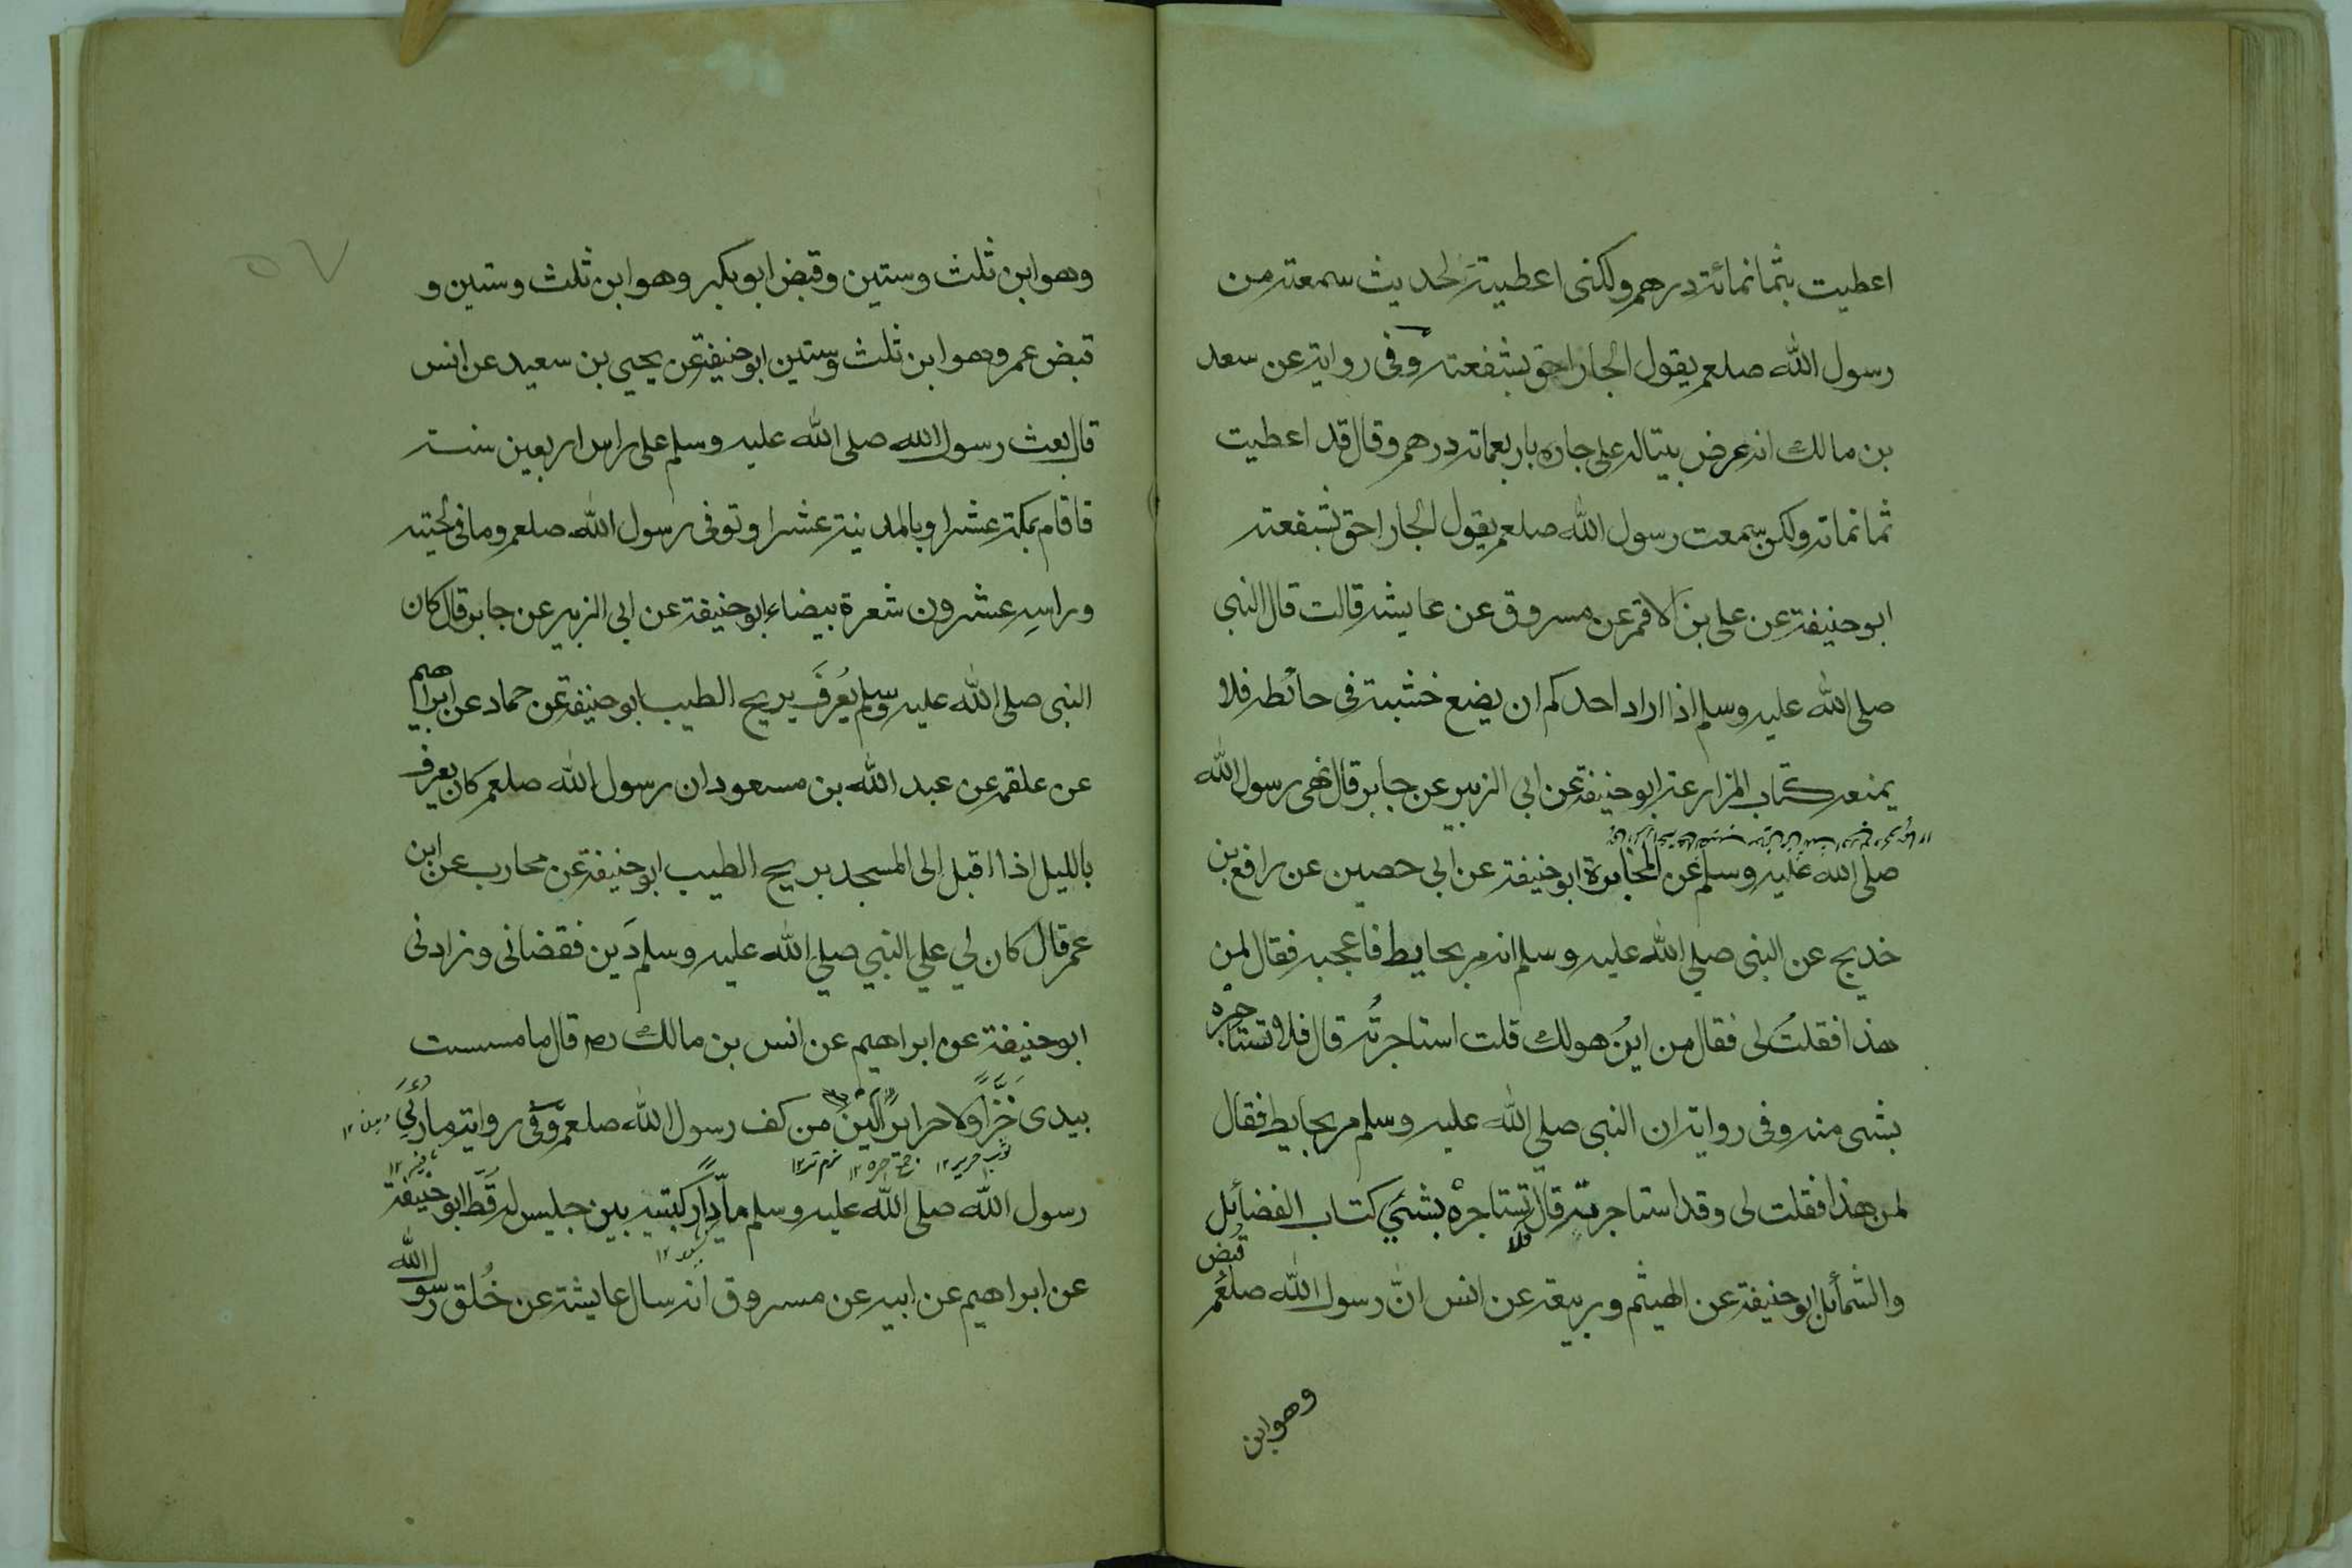 اعطيت بثمانمائة درهم ولكنى اعطيته لحديث سمعته من
رسول الله صلعم يقول الجار احق بشفعته وفى رواية عن سعد
بن مالك انه عرض بيتا له على جاره باربعماته درهم وقال قد اعطيت
ثمانماته ولكن سمعت رسول الله صلعم يقول الجار احق بشفعته
ابو حنيفة عن على بن الاقمر عن مسروق عن عايشه قالت قال النبى
صلى الله عليه وسلم اذا اراد احدكم ان يضع خشبة فى حائطه فلا
يمنعه كتاب المزارعة ابو حنيفة عن ابى الزبير عن جابر قال نهى رسول الله
صلى الله عليه وسلم عن المخابرة ابو حنيفة عن ابى حصين عن رافع بن
خديج عن النبى صلى الله عليه وسلم انه مر بحايط فاعجبه فقال لمن
هذا فقلتُ لى فقال من اين هو لك قلت استاجرتُه قال فلا تستاجره
بشى منه وفى رواية ان النبى صلى الله عليه وسلم مر بحايط فقال
لمن هذا فقلت لى وقد استاجرته قال فلا تستاجرْه بشئ كتاب الفضائل
والشمائل ابو حنيفة عن الهيثم وربيعة عن انس انّ رسول الله صلعم قبض
وهو ابن
٥٧
وهو ابن ثلث وستين وقبض ابو بكر وهو ابن ثلث وستين و
قبض عمر وهو ابن ثلث وستين ابو حنيفة عن يحيى بن سعيد عن انس
قال بعث رسول الله صلى الله عليه وسلم على راس اربعين سنة
فاقام بمكة عشرا وبالمدينة عشرا وتوفى رسول الله صلعم وما فى لحيته
وراسِه عشرون شعرة بيضاء ابو حنيفة عن ابى الزبير عن جابر قال كان
النبى صلى الله عليه وسلم يُعرَف بريح الطيب ابو حنيفة عن حماد عن ابراهيم
عن علقمه عن عبد الله بن مسعود ان رسول الله صلعم كان يعرف
بالليل اذا اقبل الى المسجد بريح الطيب ابو حنيفة عن محارب عن ابن
عمر قال كان لي علي النبي صلي الله عليه وسلم دَين فقضانى وزادنى
ابو حنيفة عن ابراهيم عن انس بن مالك رض قال ما مسست
بيدى خَزًّا ولا حريرًا الين من كف رسول الله صلعم وفى رواية ما رُئِيَ
رسول الله صلى الله عليه وسلم مادًّا ركبتيه بين جليس له قَطُّ ابو حنيفة
عن ابراهيم عن ابيه عن مسروق انه سال عايشة عن خُلق رسول الله